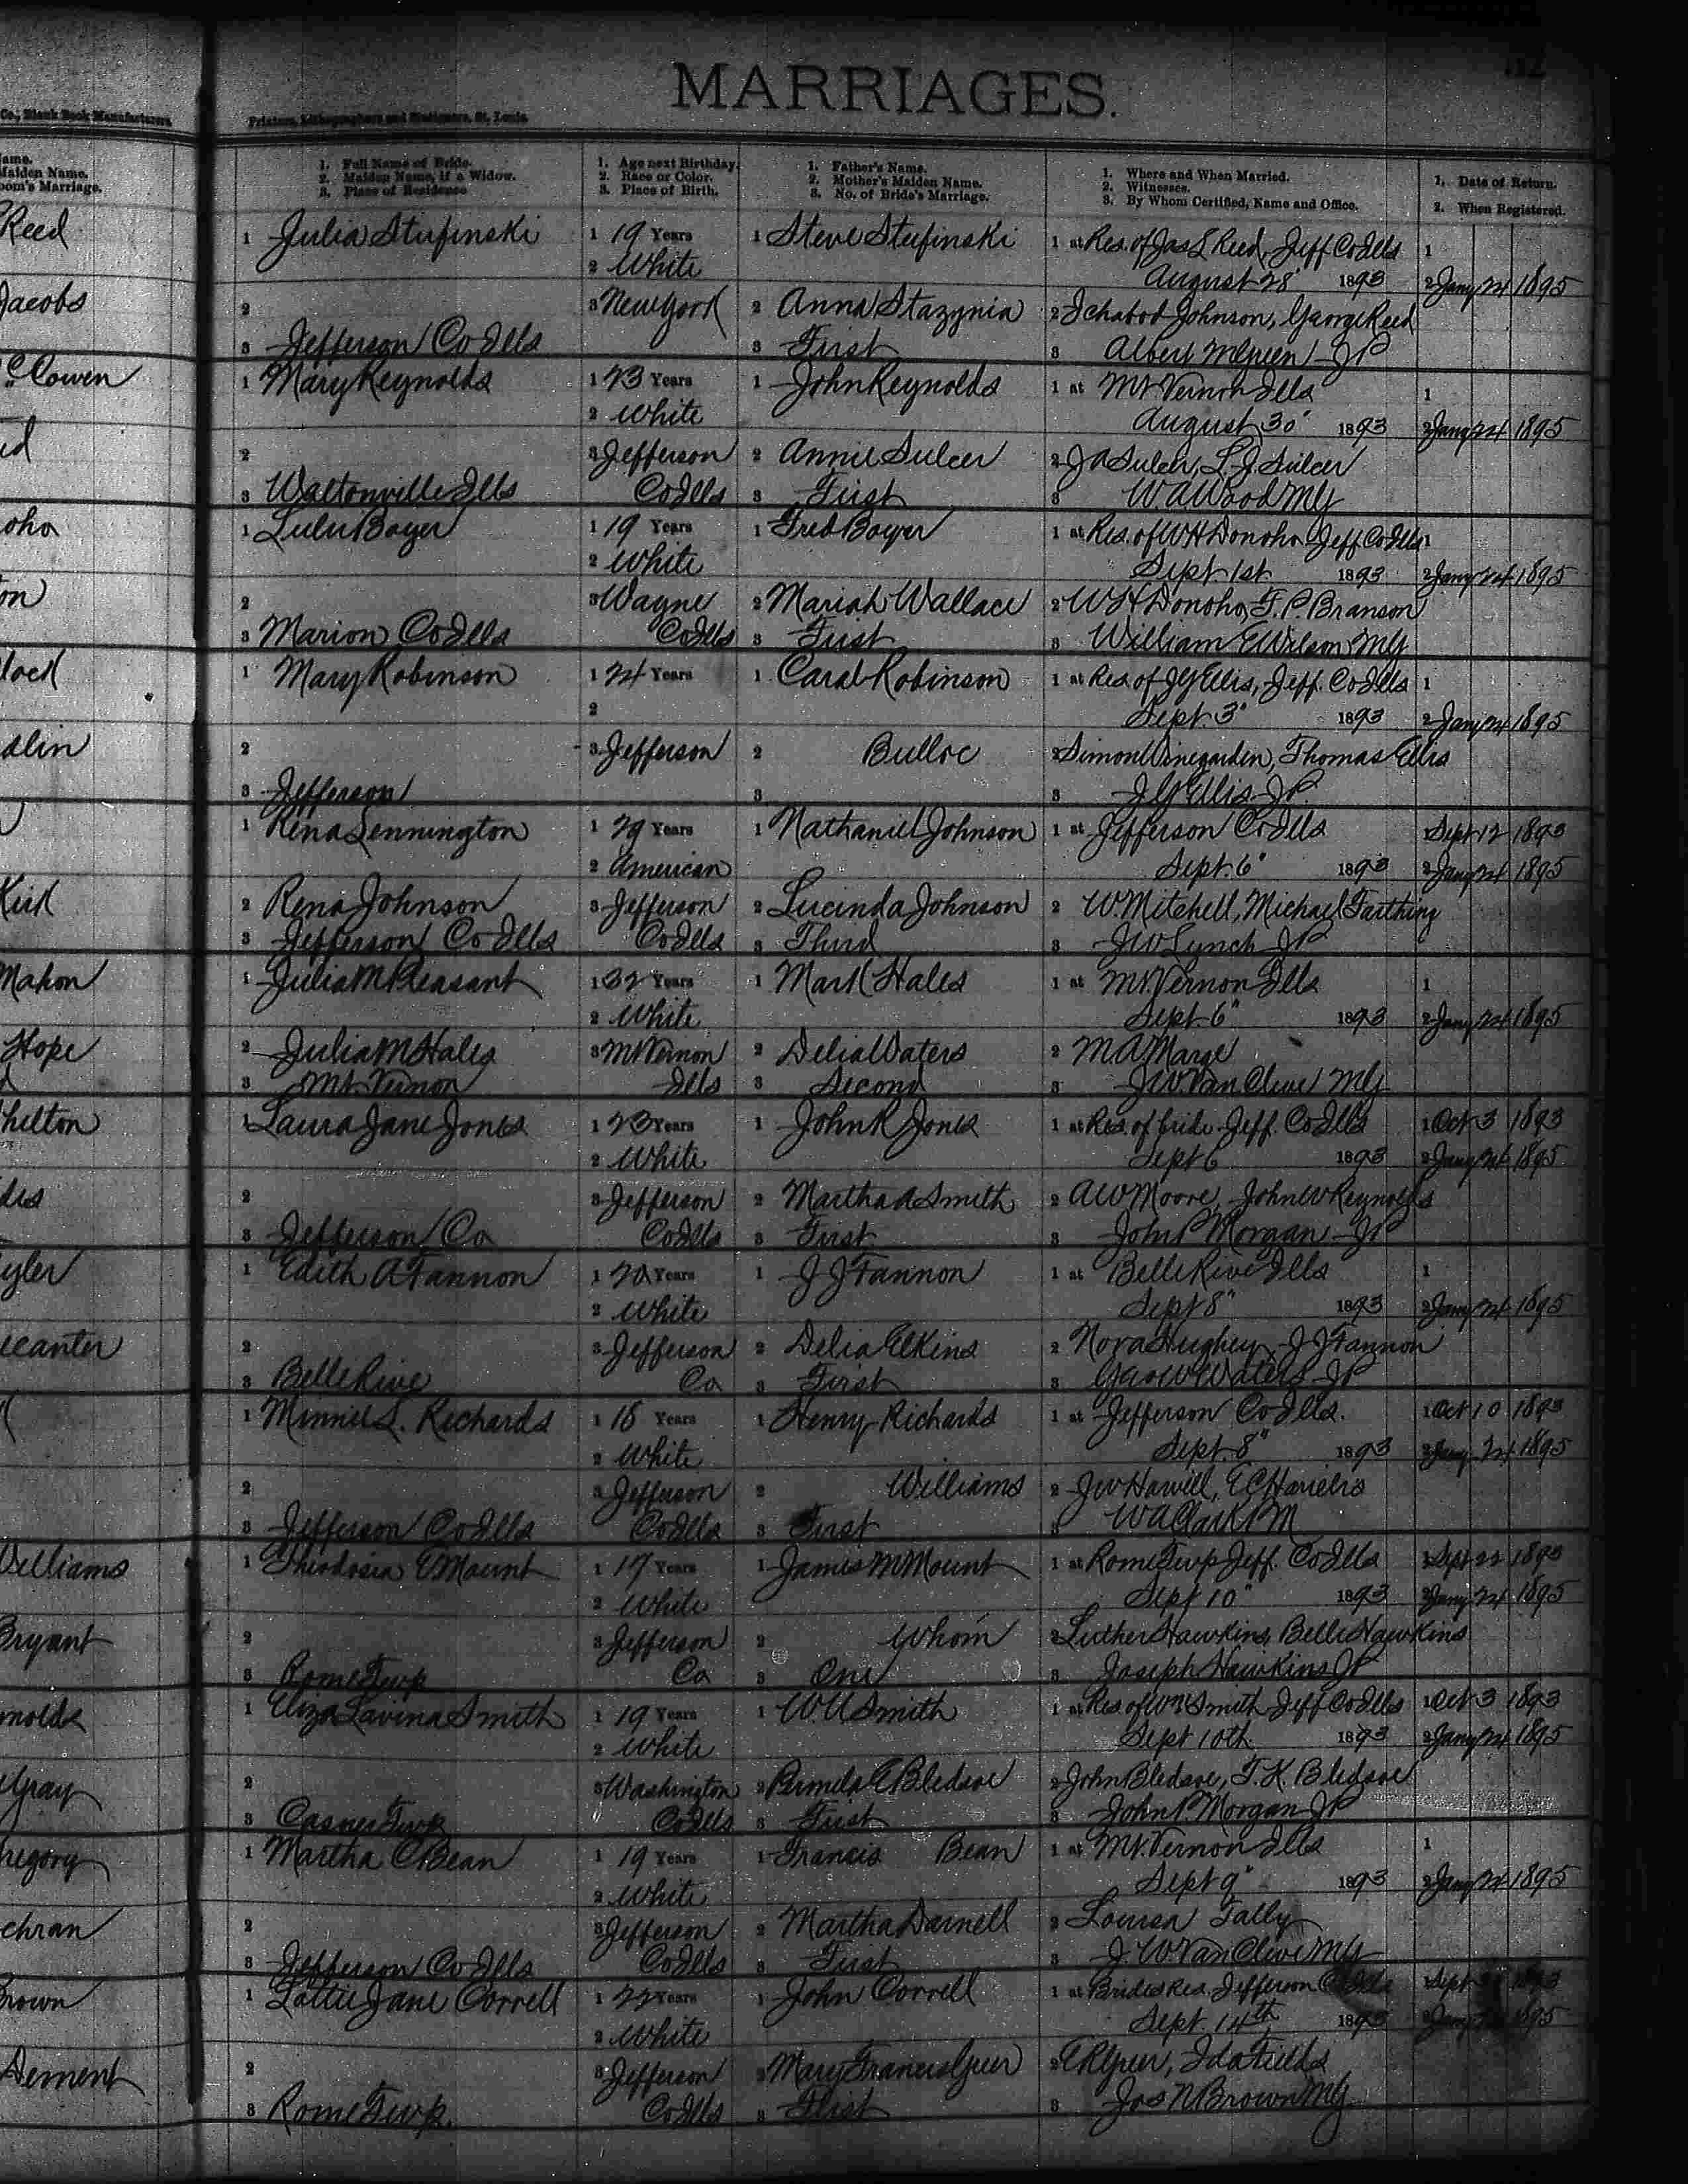 MARRIAGES.
Co., Blank Book Manufacturers,
Printers, Lithographers and Stationers, St. Louis.
ame.
Maiden Name.
oom's Marriage.
1. Full Name of Bride.
2. Maiden Name, if a Widow.
3. Place of Residence
1. Age next Birthday.
2. Race or Color.
3. Place of Birth.
1. Father's Name.
2. Mother's Maiden Name.
3. No. of Bride's Marriage.
1. Where and When Married.
2. Witnesses.
3. By Whom Certified, Name and Office.
1. Date of Return.
2. When Registered.
Reed 1 Julia Stufinski 1 19 Years 1 Steve Stufinski 1 at Res. of Jas L Reed, Jeff Co Ills 1
2 White August 28" 1893 2 Jany 24 1895
Jacobs 2 3 New York 2 Anna Stazynia 2 Ichabod Johnson, George Reed
3 Jefferson Co Ills 3 First 3 Albert M Green JP
Cowen 1 Mary Reynolds 1 23 Years 1 John Reynolds 1 at Mt. Vernon Ills 1
2 White August 30" 1893 2 Jany 24 1895
2 3 Jefferson 2 Annie Sulcer 2 J A Sulcer, L. J. Sulcer
3 Waltonville Ills Co Ills 3 First 3 W. A. Wood MG
oho 1 Lulu Boyer 1 19 Years 1 Fred Boyer 1 at Res. of W H Donoho Jeff Co Ills 1
2 White Sept 1st 1893 2 Jany 24 1895
on 2 3 Wayne 2 Mariah Wallace 2 W H Donoho, F. P. Branson
3 Marion Co Ills Co Ills 3 First 3 William E Wilson MG
lock 1 Mary Robinson 1 24 Years 1 Caral Robinson 1 at Res. of J G Ellis, Jeff. Co Ills 1
2 Sept. 3" 1893 2 Jany 24 1895
dlin 2 3 Jefferson 2 Bulloc 2 Simon Winegarden, Thomas Ellis
3 Jefferson 3 3 J G Ellis J.P.
1 Rena Lennington 1 29 Years 1 Nathaniel Johnson 1 at Jefferson Co Ills 1 Sept 12 1893
2 American Sept. 6" 1893 2 Jany 24 1895
Kirk 2 Rena Johnson 3 Jefferson 2 Lucinda Johnson 2 W. Mitchell, Michael Farthing
3 Jefferson Co Ills Co Ills 3 Third 3 J W Lynch JP
Mahon 1 Julia M Pleasant 1 32 Years 1 Mark Hales 1 at Mt. Vernon Ills 1
2 White Sept. 6" 1893 2 Jany 24 1895
Hope 2 Julia M Hales 3 Mt Vernon 2 Delia Waters 2 M A
3 Mt. Vernon Ills 3 Second 3 J W. Van Cleve MG
helton 1 Laura Jane Jones 1 23 Years 1 John R Jones 1 at Res. of bride Jeff. Co Ills 1 Oct 3 1893
2 White Sept 6 1893 2 Jany 24 1895
2 3 Jefferson 2 Martha A Smith 2 A W Moore, John W Reynolds
3 Jefferson Co Co Ills 3 First 3 John P Morgan JP
yler 1 Edith A Fannon 1 20 Years 1 J J Fannon 1 at Belle Rive Ills 1
2 White Sept 8" 1893 2 Jany 24 1895
ecanter 2 3 Jefferson 2 Delia Elkins 2 Nora Hughey, J J Fannon
3 Belle Rive Co 3 First 3 Geo W Waters JP
1 Minnie L. Richards 1 18 Years 1 Henry Richards 1 at Jefferson Co Ills. 1 Oct 10 1893
2 White Sept. 8" 1893 2 Jany 24 1895
2 3 Jefferson 2 Williams 2 J W
3 Jefferson Co Ills Co Ills 3 First 3 W A Clark
Williams 1 Theodosia E Mount 1 17 Years 1 James M Mount 1 at Rome Twp Jeff. Co Ills 1 Sept 22 1893
2 White Sept 10" 1893 2 Jany 24 1895
Bryant 2 3 Jefferson 2 Whom 2 Luther Hawkins, Belle Hawkins
3 Rome Twp Co 3 One 3 Joseph Hawkins JP
nolds 1 Eliza Lavina Smith 1 19 Years 1 W. U Smith 1 at Res. of Wm Smith Jeff Co Ills 1 Oct 3 1893
2 White Sept 10th 1893 2 Jany 24 1895
Gray 2 3 Washington 2 Permela E Bledsoe 2 John Bledsoe, T. K. Bledsoe
3 Casner Twp Co Ills 3 First 3 John P Morgan JP
regory 1 Martha C Bean 1 19 Years 1 Francis Bean 1 at Mt. Vernon Ills 1
2 White Sept 9" 1893 2 Jany 24 1895
chran 2 3 Jefferson 2 Martha Darnell 2 Louisa Tally
3 Jefferson Co Ills Co Ills 3 First 3 J. W. Van Cleve MG
Brown 1 Lottie Jane Correll 1 22 Years 1 John Correll 1 at Brides Res. Jefferson Co Ills 1 Sept 1893
2 White Sept. 14th 1893 2 Jany 1895
Dement 2 3 Jefferson 2 Mary Francis Greer 2 C R Greer, Ida Fields
3 Rome Twp. Co Ills 3 First 3 Jos N Brown MG